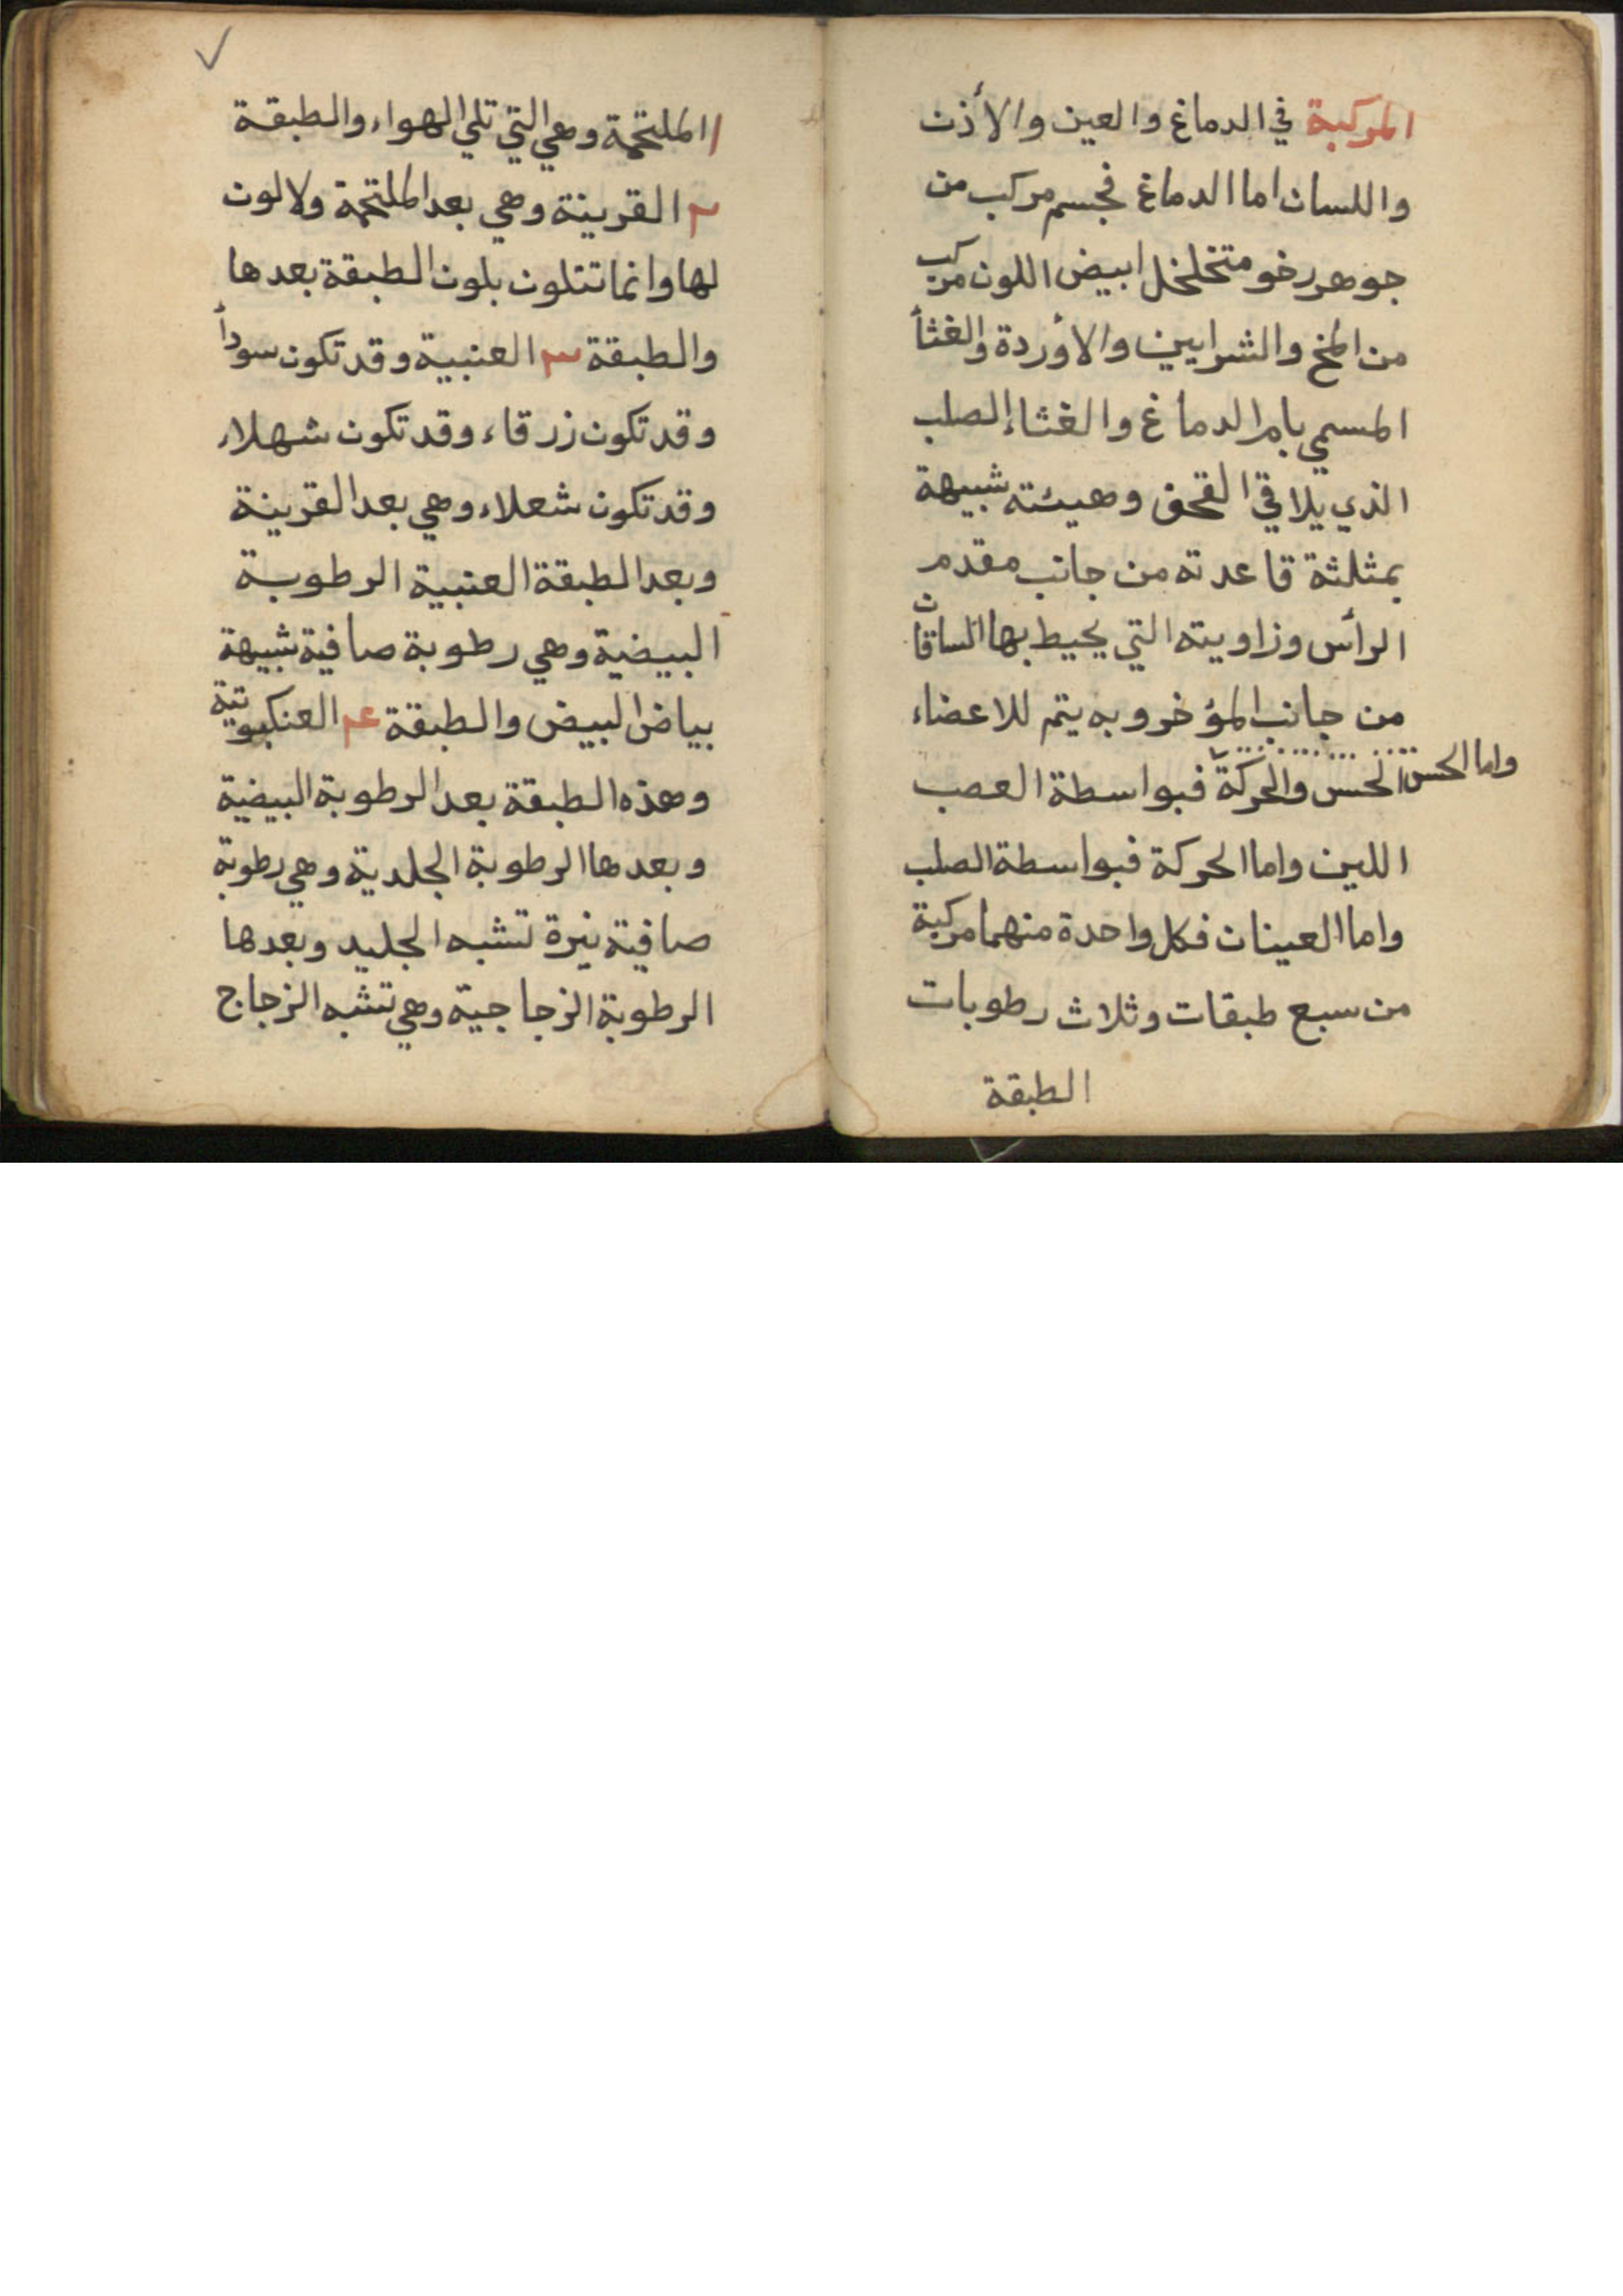 المركبة في الدماغ والعين والأذن
واللسان اما الدماغ فجسم مركب من
جوهر رخو متخلخل ابيض اللون مركب
من المخ والشرايين والأوردة والغشأ
المسمي بام الدماغ والغشاء الصلب
الذي يلاقي القحف وهيئته شبيهة
بمثلثة قاعدته من جانب مقدم
الرأس وزاويته التي يحيط بها الساقان
من جانب المؤخر وبه يتم للاعضاء
الحس والحركة واما الحس فبواسطة العصب
اللين واما الحركة فبواسطة الصلب
واما العينان فكل واحدة منهما مركبة
من سبع طبقات وثلاث رطوبات
الطبقة
١ الملتحمة وهي التي تلي الهواء والطبقة
٢ القرينة وهي بعد الملتحمة ولا لون
لها وانما تتلون بلون الطبقة بعدها
والطبقة ٣ العنبية وقد تكون سودأ
وقد تكون زرقاء وقد تكون شهلاء
وقد تكون شعلاء وهي بعد القرينة
وبعد الطبقة العنبية الرطوبة
البيضية وهي رطوبة صافية شبيهة
بياض البيض والطبقة ٤ العنكبوتية
وهذه الطبقة بعد الرطوبة البيضية
وبعدها الرطوبة الجلدية وهي رطوبة
صافية نيرة تشبه الجليد وبعدها
الرطوبة الزجاجية وهي تشبه الزجاج